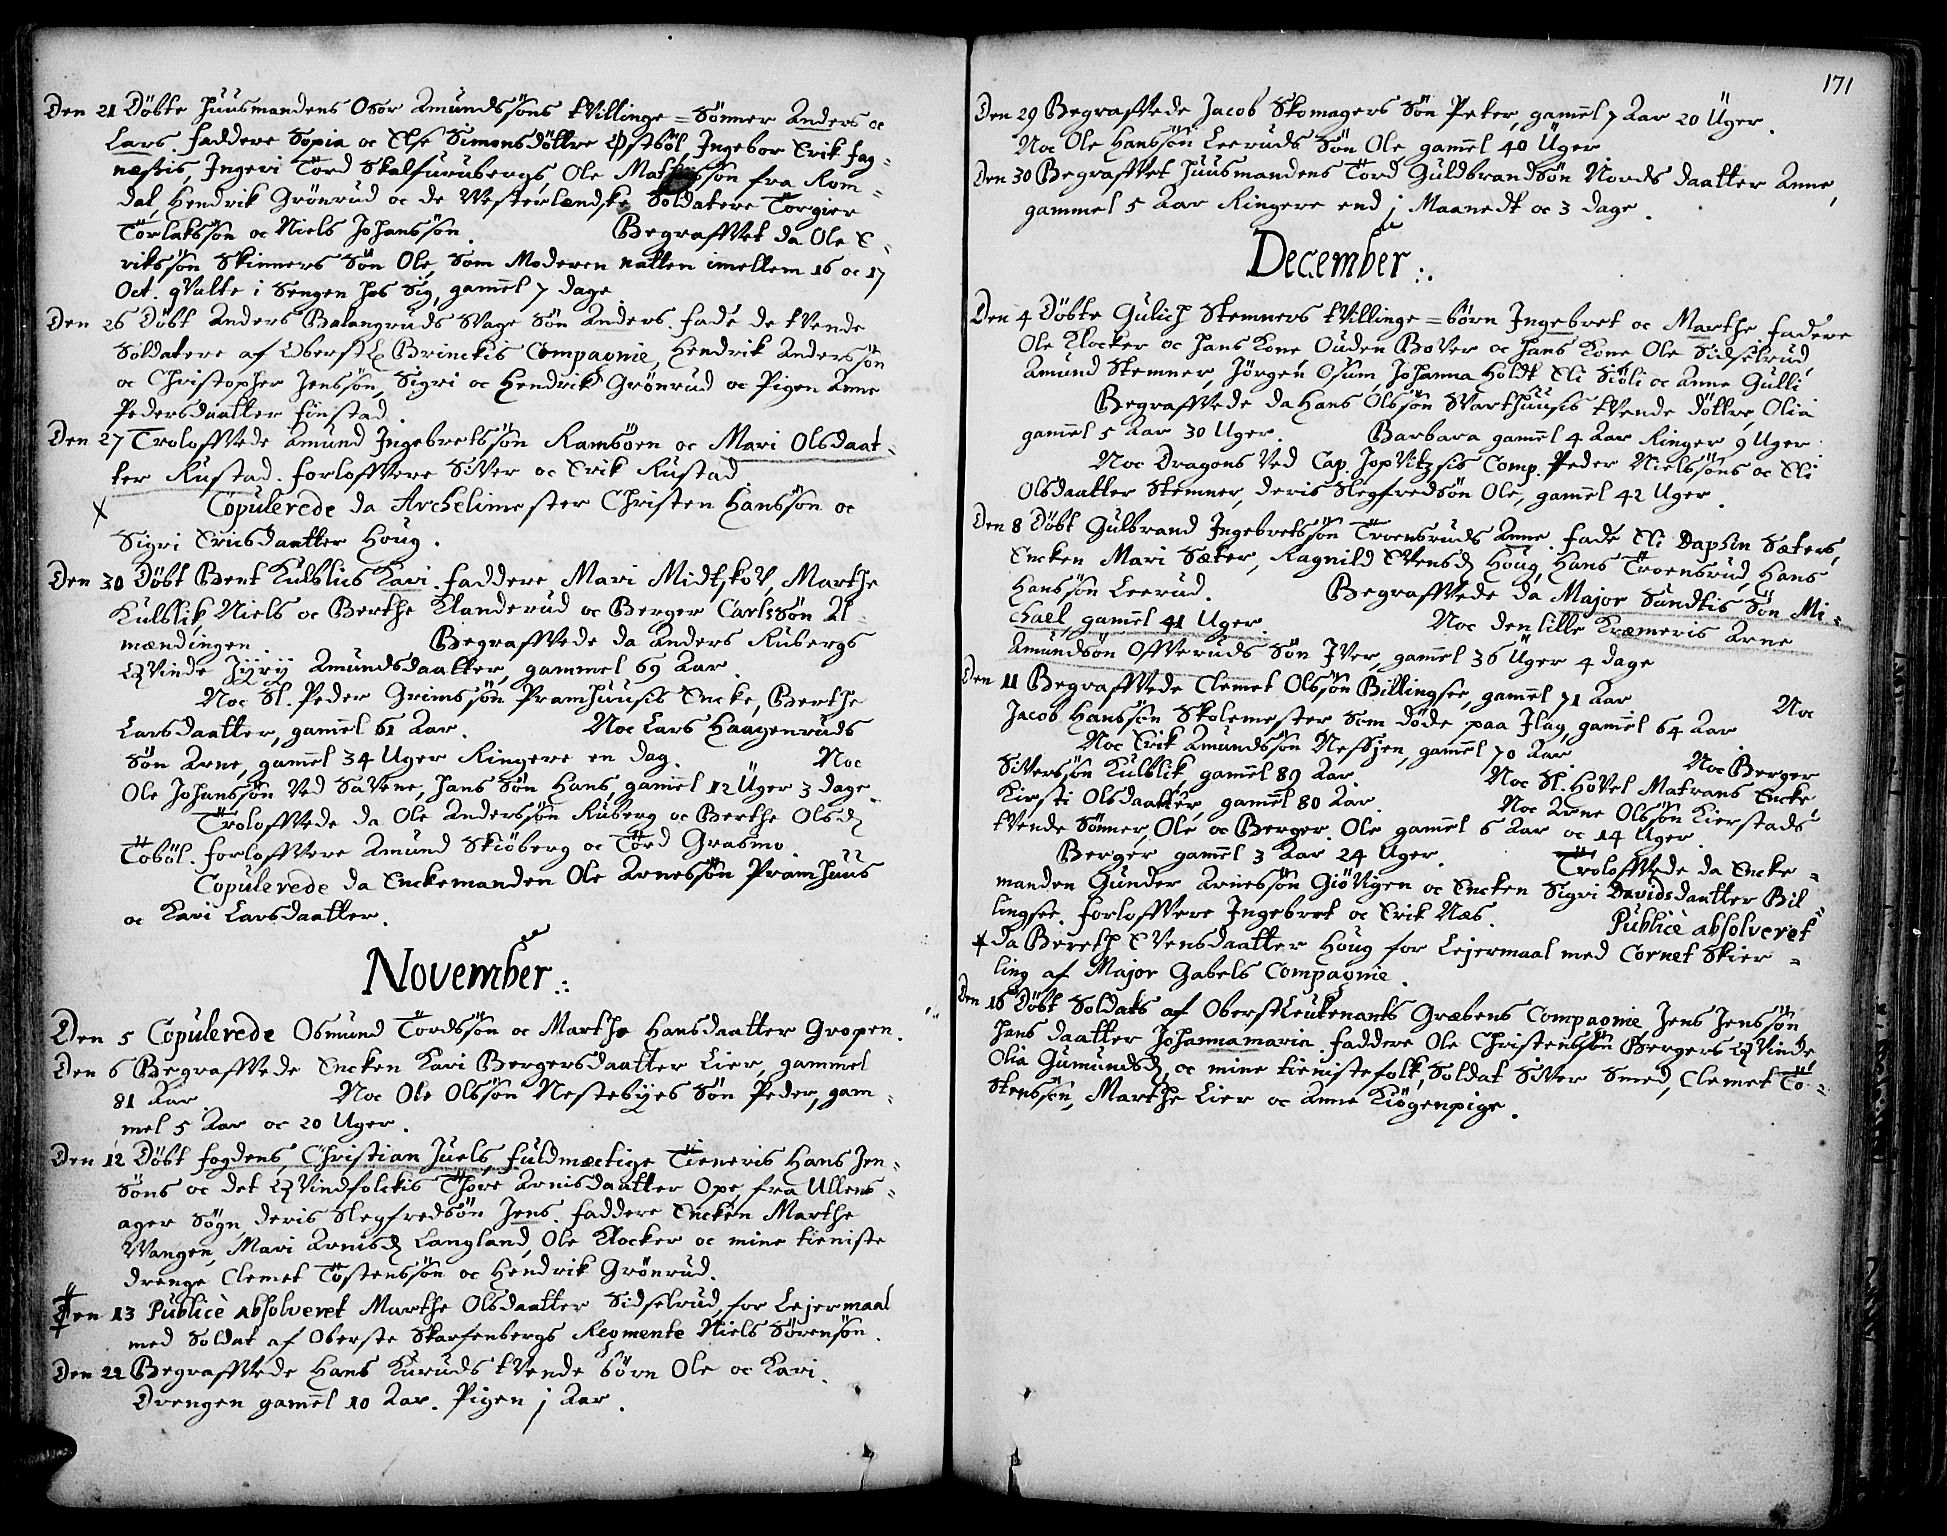 Den 21 Döbte Huusmandens Osör Amundssöns tVillinge = Sönner Anders oc
Lars. Faddere Sopia oc Else Simonsdöttre Östböl, Ingebor Erik Fag=
næssis, Ingeri Tord Skalfurubergs, Ole Mathisson fra Rom=
dal, Hendrik Grönrud oc de Westerlendske Soldatere Törgier
Törlakssön oc Niels Johanssön. Begraffvet da Ole E=
rikssön Skinners Sön Ole, som Moderen natten imellem 16 oc 17
Oct. qValte i Sengen hos Sig, gamel 7 dage
Den 26 Döbt Anders Balangruds Svage Sön Anders. Fadē de tvende
Soldatere af Oberstl. Brinckis Compagnie, Hendrik Anderssön
oc Christopher Jenssön, Sigri oc Hendrik Grönrud oc Pigen Anne
Pedersdaatter Finstad.
Den 27 Troloffvede Amund Ingebretssön Ramsöen oc Mari Olsdaat=
ter Rustad. Forloffvere Siver oc Erik Rustad
X Copulerede da Archelimester Christen Hanssön oc
Sigri Ericsdaatter Houg.
Den 30 Döbt Bent Kulblics Kari. Faddere, Mari Midtskov, Marthe
Kulblik, Niels oc Berthe Klanderud oc Berger Carlssön Al=
mændingen. Begraffvede da Anders Rubergs
Qvinde Jyrij Amundsdaatter, gammel 69 Aar.
Noc Sl. Peder Grimssön Pramhuusis Encke, Berthe
Larsdaatter, gamel 61 Aar. Noc Lars Haagenruds
Sön Arne, gamel 34 Uger Ringere en dag. Noc
Ole Johanssön ved Savene, hans Sön Hans, gamel 12 Uger 3 dage.
Troloffvede da Ole Anderssön Ruberg oc Berthe Olsd.
Töböl. Forloffvere Amund Skiöberg oc Tord Grasmo.
Copulerede da Enckemanden Ole Arnessön Pramhuus
oc Kari Larsdaatter.
November.
Den 5 Copulerede Osmund Tördssön oc Marthe Hansdaatter Gropen.
Den 6 Begraffvede Encken Kari Bergersdaatter Lier, gammel
81 Aar. Noc Ole Olssön Nestebyes Sön Peder, gam=
mel 5 Aar oc 20 Uger.
Den 12 Döbt Fogdens, Christian Juels, Fuldmectige Tieneris Hans Jen=
söns oc det Qvindfolckis Thore Arnisdaatter Ope, fra Ullens=
ager Sögn, deris Slegfredsön Jens. Faddere Encken Marthe
Wangen, Mari Arnisd. Langland, Ole Klocker oc mine tieniste
drenge Clemet Töstenssön oc Hendrik Grönrud.
Den 13 Publicè absolveret Marthe Olsdaatter Sidselrud, for Lejermaal
med Soldat af Oberste Skarfenbergs Regmente Niels Sörensön.
Den 22 Begraffvede Hans Kuruds tvende börn Ole oc Kari.
Drengen gamel 10 Aar. Pigen j Aar.
171
Den 29 Begraffvede Jacob Skomagers Sön Peter, gamel 7 Aar 20 Uger.
Noc Ole Hanssön Leeruds Sön Ole gamel 40 Uger
Den 30 Begraffvet Huusmandens Törd Guldbrandsön Nords daatter Anne,
gammel 5 Aar Ringere end j Maanedt oc 3 dage.
December.
Den 4 Döbte Gulich Stemners tVillinge = börn Ingebret oc Marthe Fadere
Ole Klocker oc hans Kone, Ouden Bover oc hans Kone Ole Sidselrud,
Amund Stemner, Jörgen Osum, Johanna Holdt Eli Siöli oc Anne Gulli
Begraffvede da Hans Olssön Svarthuusis tvende döttre, Olia
gamel 5 Aar 30 Uger. Barbara gamel 4 Aar Ringer 9 Uger.
Noc Dragons ved Cap. Jopvitzsis Comp. Peder Nielssöns oc Eli
Olsdaatter Stemner, deris Slegfredsön Ole, gamel 42 Uger.
Den 8 Döbt Gulbrand Ingebretssön Troensruds Anne. Fadē Eli Dapsin Sæters,
Encken Mari Sæter, Ragnild Evensd. Houg, Hans Troensrud, Hans
Hanssön Leerud. Begraffvede da Major Sundtis Sön Mi=
chael, gamel 41 Uger. Noc den lille Kræmeris Arne
Amundsön Offveruds Sön Iver, gamel 36 Uger 4 dage
Den 11 Begraffvede Clemet Olssön Billingsee, gamel 71 Aar. Noc
Jacob Hanssön Skolemester som döde paa Flag, gamel 64 Aar
Noc Erik Amundssön Nessjen, gamel 70 Aar. Noc Berger
Siverssön Kulblik, gamel 89 Aar. Noc Sl. Hovel Matrans Encke
Kirsti Olsdaatter, gamel 80 Aar. Noc Arne Olssön Kierstads
tvende Sönner, Ole oc Berger. Ole gamel 6 Aar oc 14 Uger.
Berger gamel 3 Aar 24 Uger. Troloffvede da Encke=
manden Gunder Arnessön Giövigen oc Encken Sigri Davidsdaatter Bil
lingsee. Forloffvere Ingebret oc Erik Næs. Publicè absolveret
da Bereth Evensdaatter Houg for Lejermaal med Cornet Skier=
ling af Major Gabels Compagnie.
Den 16 Döbt Soldats af Oberstleutenants Græbens Compagnie, Jens Jenssön
hans daatter Johannamaria. Faddere Ole Christenssön Bergers Qvinde
Olia Gumundsd., oc mine tienistefolk, Soldat Siver Smed, Clemet Tö=
stenssön, Marthe Lier oc Anne Kiögenpige.